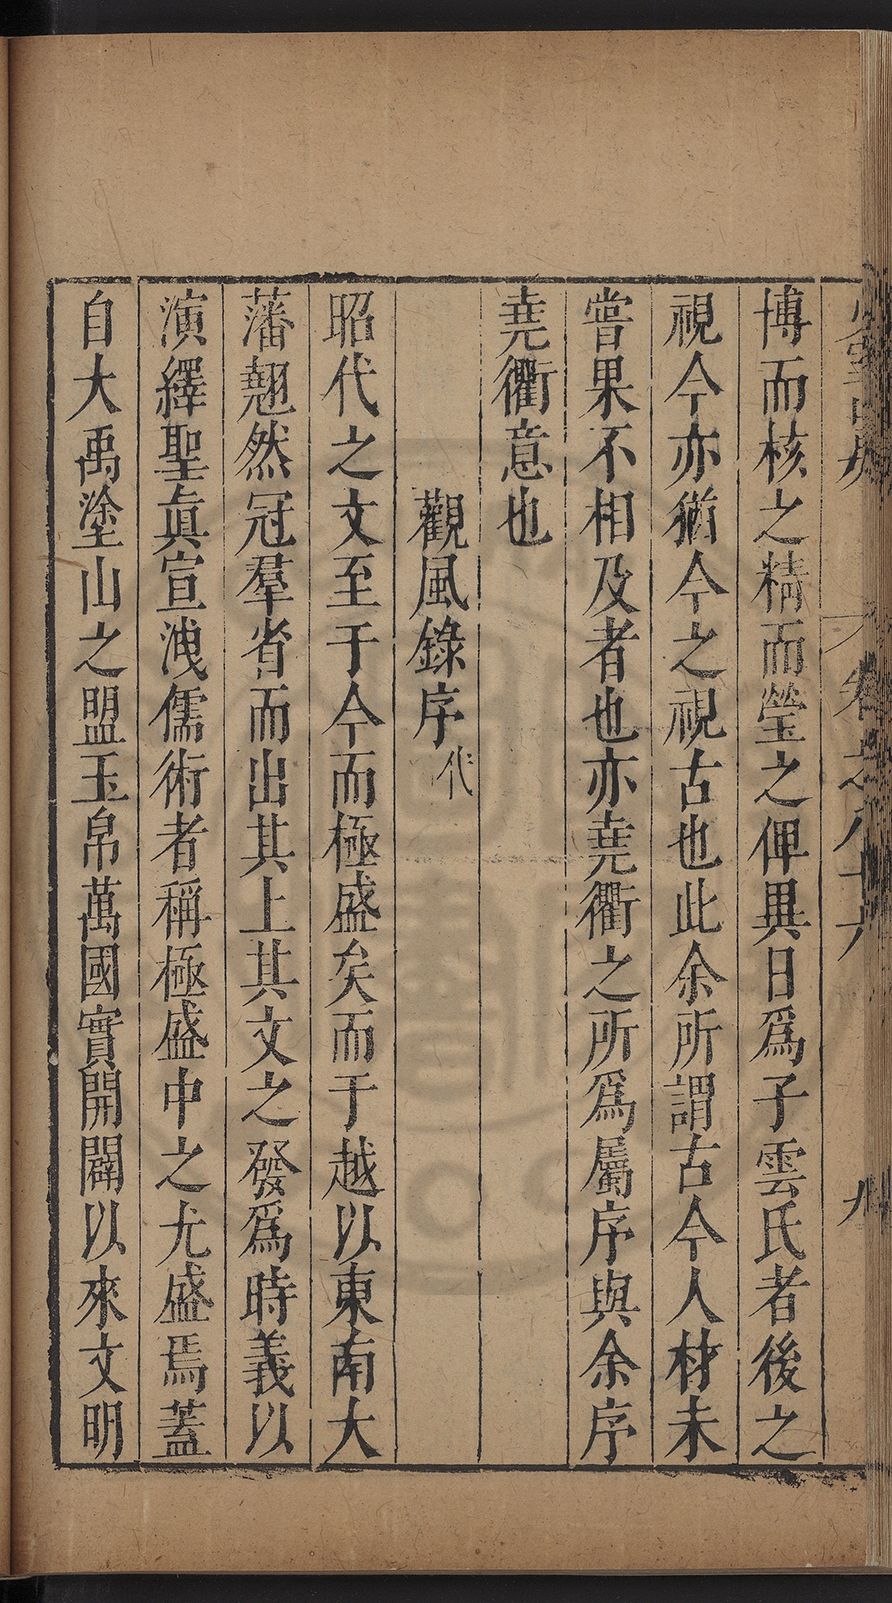 卷之八十六
九
博而核之精而瑩之俾異日爲子雲氏者後之
視今亦猶今之視古也此余所謂古今人材未
嘗果不相及者也亦堯衢之所爲屬序與余序
堯衢意也
觀風錄序代
昭代之文至于今而極盛矣而于越以東南大
藩翹然冠羣省而出其上其文之發爲時義以
演繹聖眞宣洩儒術者稱極盛中之尤盛焉蓋
自大禹塗山之盟玉帛萬國實開闢以來文明